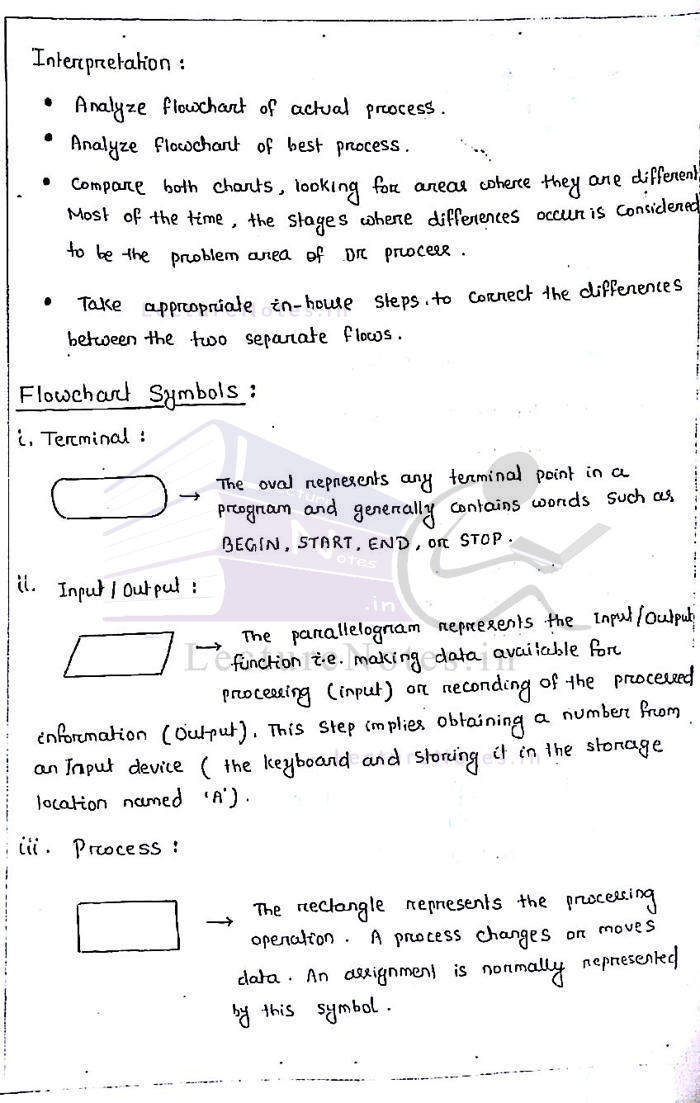 Interpretation :
• Analyze flowchart of actual process.
• Analyze flowchart of best process.
• Compare both charts, looking for areas where they are different
Most of the time, the stages where differences occur is considered
to be the problem area of or process.
• Take appropriate in-house steps to correct the differences
between the two separate flows.
Flowchart Symbols :
i. Terminal :
→ The oval represents any terminal point in a
program and generally contains words such as
BEGIN, START, END, or STOP.
ii. Input / Output :
→ The parallelogram represents the Input/Output
function i.e. making data available for
processing (input) or recording of the processed
information (Output). This step implies obtaining a number from
an Input device ( the keyboard and storing it in the storage
location named 'A').
iii. Process :
→ The rectangle represents the processing
operation. A process changes or moves
data. An assignment is normally represented
by this symbol.
Lecture
Notes
.in
LectureNotes.in
LectureNotes.in
LectureNotes.in